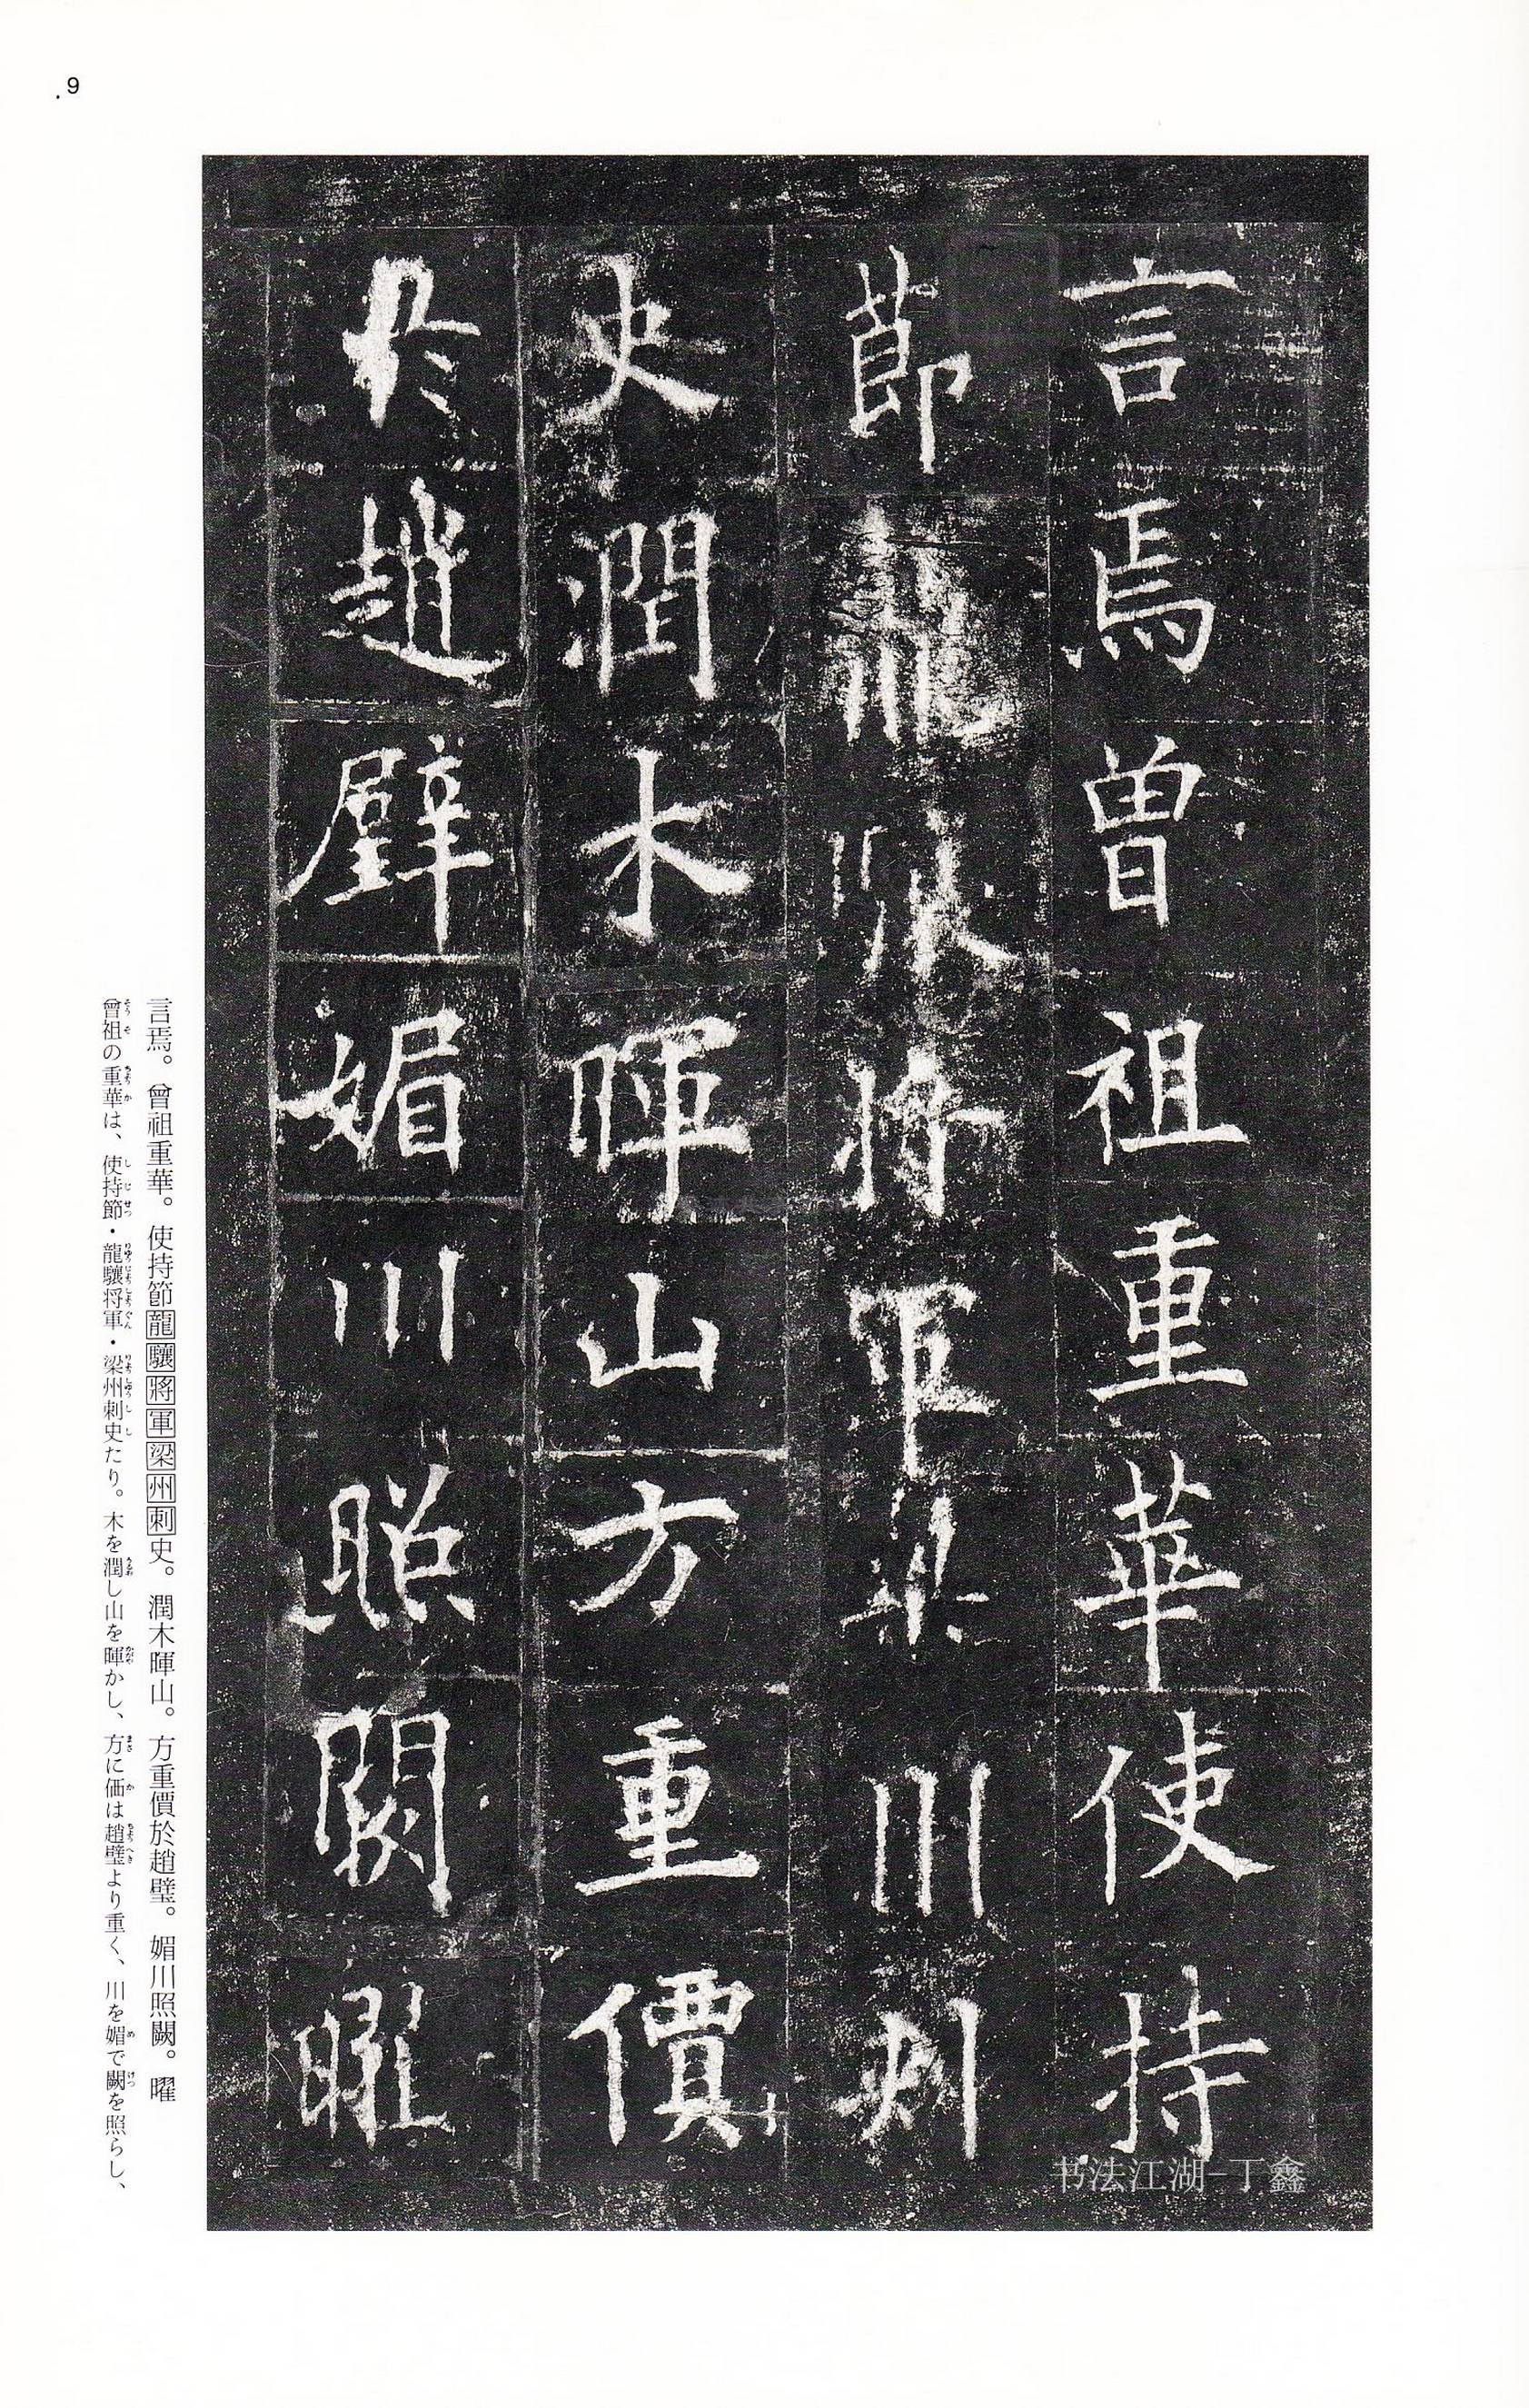 9
言焉曽祖重華使持
節龍驤將軍梁州刺
史潤木暉山方重價
於趙璧媚川照闕曜
书法江湖-丁鑫
言焉。曾祖重華。使持節龍驤將軍梁州刺史。潤木暉山。方重價於趙璧。媚川照闕。曜
曾祖の重華は、使持節・龍驤将軍・梁州刺史たり。木を潤し山を暉かし、方に価は趙璧より重く、川を媚で闕を照らし、